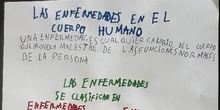 LAS ENFERMEDADES EN EL
CUERPO HUMANO
UNA ENFERMEDAD ES CUALQUIER CAMBIO DEL CUERPO
QUE PRODUCE MALESTAR DE LAS FUNCIONES NORMALES
DE LA PERSONA
LAS ENFERMEDADES
SE CLASIFICAN EN